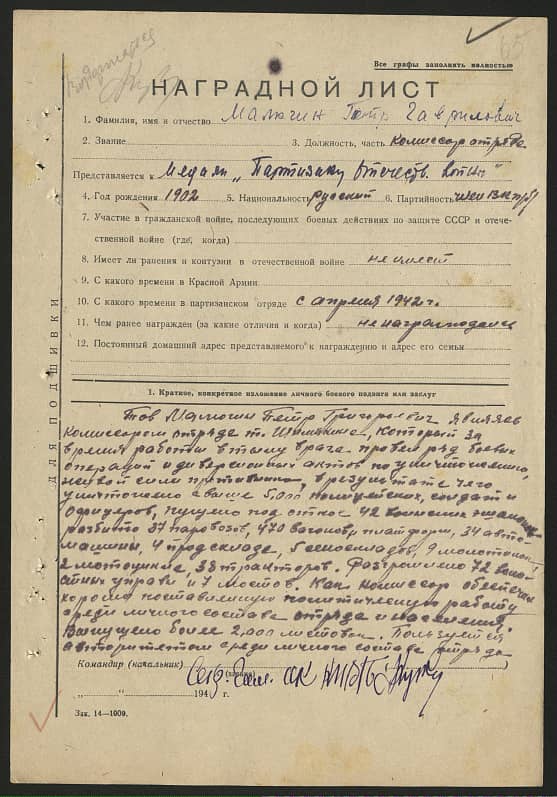 65
Все графы заполнять полностью
НАГРАДНОЙ ЛИСТ
1. Фамилия, имя и отчество Малюгин Петр Гаврилович
2. Звание 3. Должность, часть Комиссар отряда
Представляется к Медали „Партизану Отечеств. войны"
4. Год рождения 1902 5. Национальность русский 6. Партийность член ВКП(б)
7. Участие в гражданской войне, последующих боевых действиях по защите СССР и отече-
ственной войне (где, когда)
8. Имеет ли ранения и контузии в отечественной войне не имеет
9. С какого времени в Красной Армии
10. С какого времени в партизанском отряде с апреля 1942 г.
11. Чем ранее награжден (за какие отличия и когда) не награждался
12. Постоянный домашний адрес представляемого к награждению и адрес его семьи
ДЛЯ ПОДШИВКИ
1. Краткое, конкретное изложение личного боевого подвига или заслуг
Тов Малюгин Петр Григорьевич являясь
Комиссаром отряда т. который за
время работы в тылу врага провел ряд боевых
операций и диверсионных актов по уничтожению
живой силы противника, в результате чего
уничтожено свыше 5000 полицейских, солдат и
офицеров, пущено под откос 42 воинских эшелона
разбито 37 паровозов, 470 вагонов и платформ, 34 авто
машины, 4 продсклада, 5 сеноскладов, 9 молотилок,
2 мотоцикла, 38 тракторов. Разгромлено 72 волос
стных управ и 7 мостов. Как комиссар обеспечил
хорошо поставленную политическую работу
среди личного состава отряда и населения.
Выпущено более 2,000 листовок. Пользуется
авторитетом среди личного состава отряда
Командир (начальник)
(звание)
„ “ 194 г.
Зак. 14—1909.